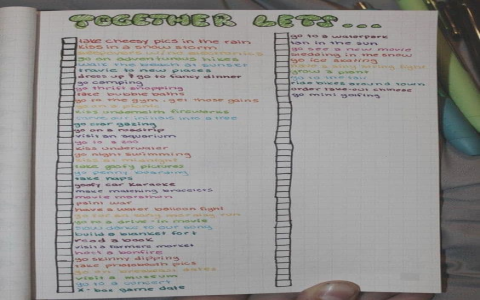 TOGETHER LETS...
take cheesy pics in the rain
kiss in a snow storm
go on adventurous hikes
walk the beach at sunset
travel to new places
dress up & go to fancy dinner
go camping
go thrift shopping
take bubble baths
go to the gym, get those gains
kiss underneath fireworks
carve our initials into a tree
go star gazing
go on a roadtrip
visit an aquarium
go to a zoo
kiss underwater
go night swimming
kiss at midnight
take goofy pictures
go penny boarding
take naps
goofy car karaoke
make matching bracelets
movie marathon
paint war
have a water balloon fight
go to a drive-in movie
slow dance to our song
build a blanket fort
read a book
visit a farmers market
host a bonfire
go skinny dipping
take photobooth pics
go on breakfast dates
visit a museum
go to a concert
x-box game date
go to a waterpark
tan in the sun
go see a new movie
sledding in the snow
go ice skating
grow a plant
ride bikes around town
order take-out chinese
go mini golfing